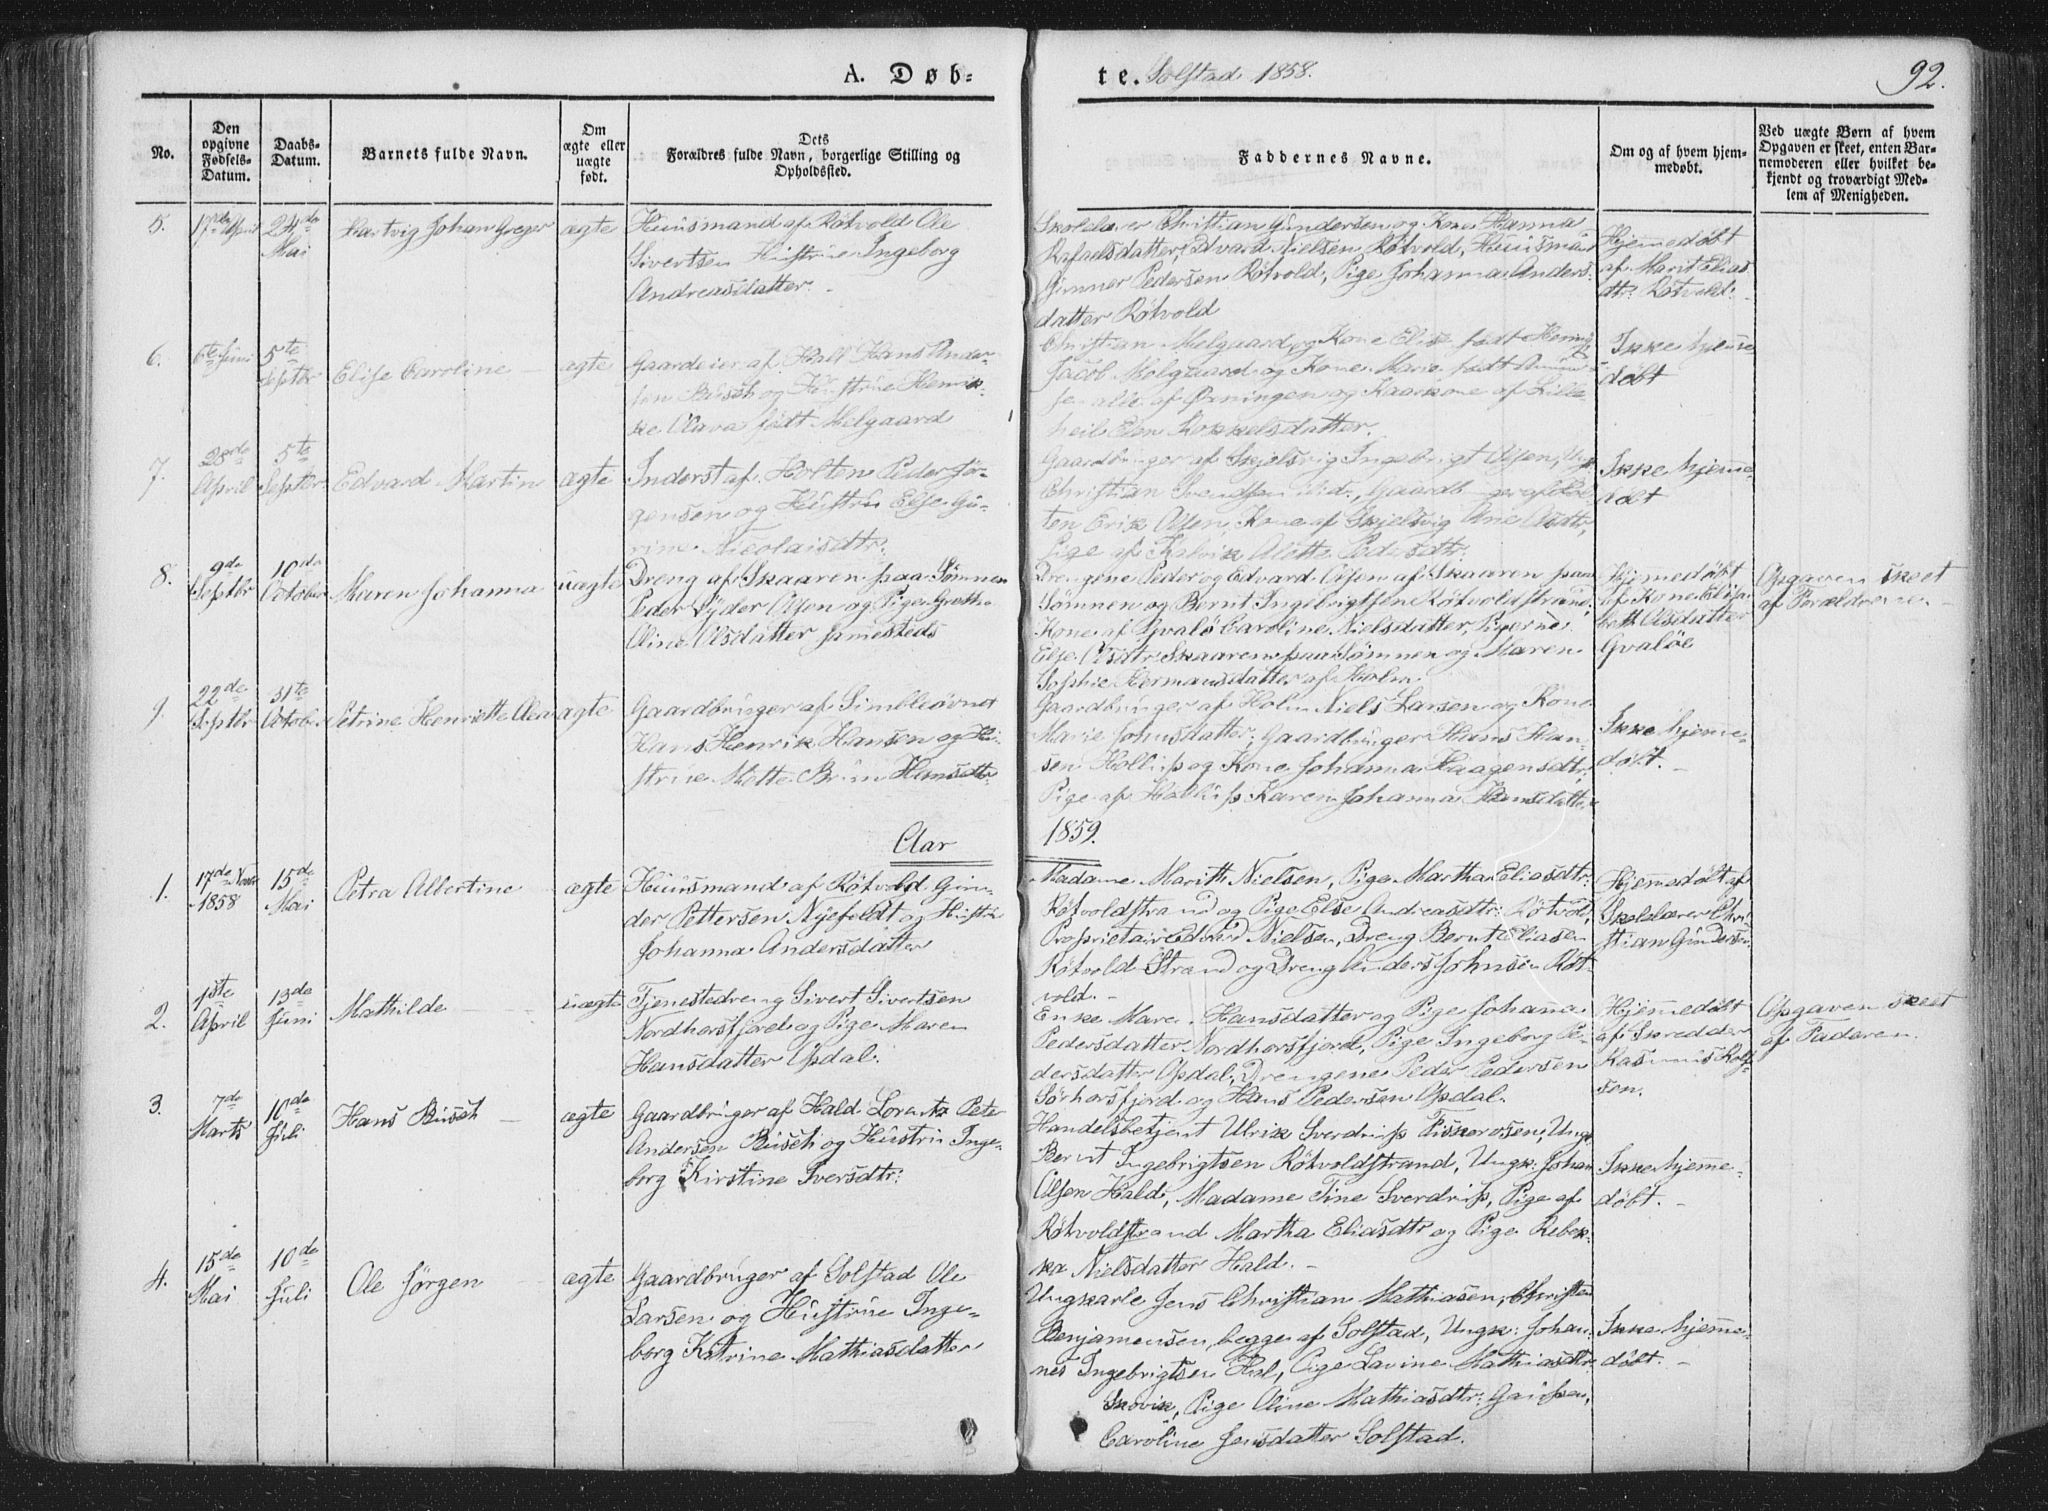 A. Døb-
te. Solstad 1858.
92.
No.
Den opgivne Fødsels-Datum.
Daabs-Datum.
Barnets fulde Navn.
Om ægte eller uægte født.
Dets Forældres fulde Navn, borgerlige Stilling og Opholdssted.
Faddernes Navne.
Om og af hvem hjem-medøbt.
Ved uægte Børn af hvem Opgaven er skeet, enten Bar-nemoderen eller hvilket be-kjendt og troværdigt Med-lem af Menigheden.
5.
17de April
24de Mai
Hartvig Johan Greger
ægte
Huusmand af Røtvold Ole
Sivertsen Hustrue Ingeborg
Andreasdatter.
Skolelærer Christian Gundersen og Kone Hanna
Rafaelsdatter, Edvard Nielsen Røtvold, Huusmand
Pedersen Røtvold, Pige Johanna Anders-
datter Røtvold
Hjemmedøbt
af Marit Elias
dtr: Røtvold.
6.
6te Juni
5te Septbr
Elise Caroline
ægte
Gaardeier af Hald Hans Ander-
sen Busch og Hustrue Henrik-
ke Olava født Melgaard
Christian Melgaard og Kone Elise født
Jacob Melgaard og Kone Marie født
alle af Ørningen og Kaarkone af Lille
heil Elen
Ikke hjemme
døbt
7.
28de April
5te Septbr
Edvard Martin
ægte
Inderst af Holten Peder Jør-
gensen og Hustru Else Gu-
rine Nicolaisdtr:
Gaardbruger af Skjelsvig Ingebrigt Olsen, Ungk
Christian Svendsen ibid., Gaardbruger af Hol-
ten Erik Olsen, Kone af Skjelsvig Ane Olsdtr,
Pige af Kalvik Pedersdtr:
Ikke hjemme
døbt
8.
9de Septbr
10de October
Maren Johanna
uægte
Dreng af Skaaren paa Sømnen
Peder Olsen og Pige Grethe
Oline Olsdatter sammesteds
Drengene Peder og Edvard Olsen af Skaaren paa
Sømnen og Bernt Ingebrigtsen Røtvoldstrand,
Kone af Gvalø Caroline Nielsdatter, Pigerne
Else Olsdtr: Skaaren paa Sømnen og Maren
Sophie Hermansdatter af Holm.
Hjemmedøbt
af Kone Elisa-
beth Olsdatter
Gvaløe
Opgaven skeet
af Forældrene.
9.
22de Septbr
31te October
Petrine Henriette Olea
ægte
Gaardbruger af Simbleøvnet
Hans Henrik Hansen og Hu-
strue Mette Brun Hansdtr:
Gaardbruger af Holm Niels Larsen og Kone
Marie Johnsdatter, Gaardbruger Hans Han-
sen Hollup og Kone Johanna Haagensdtr,
Pige af Hollup Karen Johanna Hansdatter
Ikke hjemme-
døbt.
Aar
1859.
1.
17de Novbr 1858
15de Mai
Petra Albertine
ægte
Huusmand af Røtvold Gun-
der Pettersen Nyefoldt og Hustru
Johanna Andersdatter
Madame Marith Nielsen, Pige Martha Eliasdtr:
Røtvoldstrand og Pige Else Andreasdtr: Røtvold,
Proprietair Edvard Nielsen, Dreng Bernt Eliasen
Røtvold Strand og Dreng Anders Johnsen Røt-
vold.
Hjemmedøbt af
Skolelærer Chri-
stian Gundersen
2.
1ste April
13de Juni
Mathilde
uægte
Tjenestedreng Sivert Sivertsen
Nordhorsfjord og Pige Maren
Hansdatter Opdal.
Enke Hansdatter og Pige Johanna
Pedersdatter Nordhorsfjord, Pige Ingeborg Pe-
dersdatter Opdal, Drengene Peder Pedersen
Sørhorsfjord og Hans Pedersen Opdal.
Hjemmedøbt
af Skredder
Rasmus Rolf-
sen.
Opgaven skeet
af Faderen.
3.
7de Marts
10de Juli
Hans Busch
ægte
Gaardbruger af Hald Lorentz Peter
Andersen Busch og Hustru Inge-
borg Kirstine Iversdtr:
Handelsbetjent Ulrik Sverdrup Fiskerosen, Ungk
Bernt Ingebrigtsen Røtvoldstrand, Ungk: Johan
Olsen Hald, Madame Tine Sverdrup, Pige af
Røtvoldstrand Martha Eliasdtr og Pige Rebek-
ka Nielsdatter Hald.
Ikke hjemme-
døbt.
4.
15de Mai
10de Juli
Ole Jørgen
ægte
Gaardbruger af Solstad Ole
Larsen og Hustrue Inge-
borg Katrine Mathiasdatter
Ungkarle Jens Christian Mathiasen, Christen
Benjamensen, begge af Solstad, Ungk: Johan-
nes Ingebrigtsen Hul, Pige Lavine Mathiasdtr:
Skovik, Pige Oline Mathiasdtr:
Caroline Jensdatter Solstad.
Ikke hjemme-
døbt.